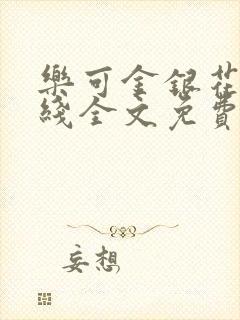 樂可金銀花
綫全文免費
妄想